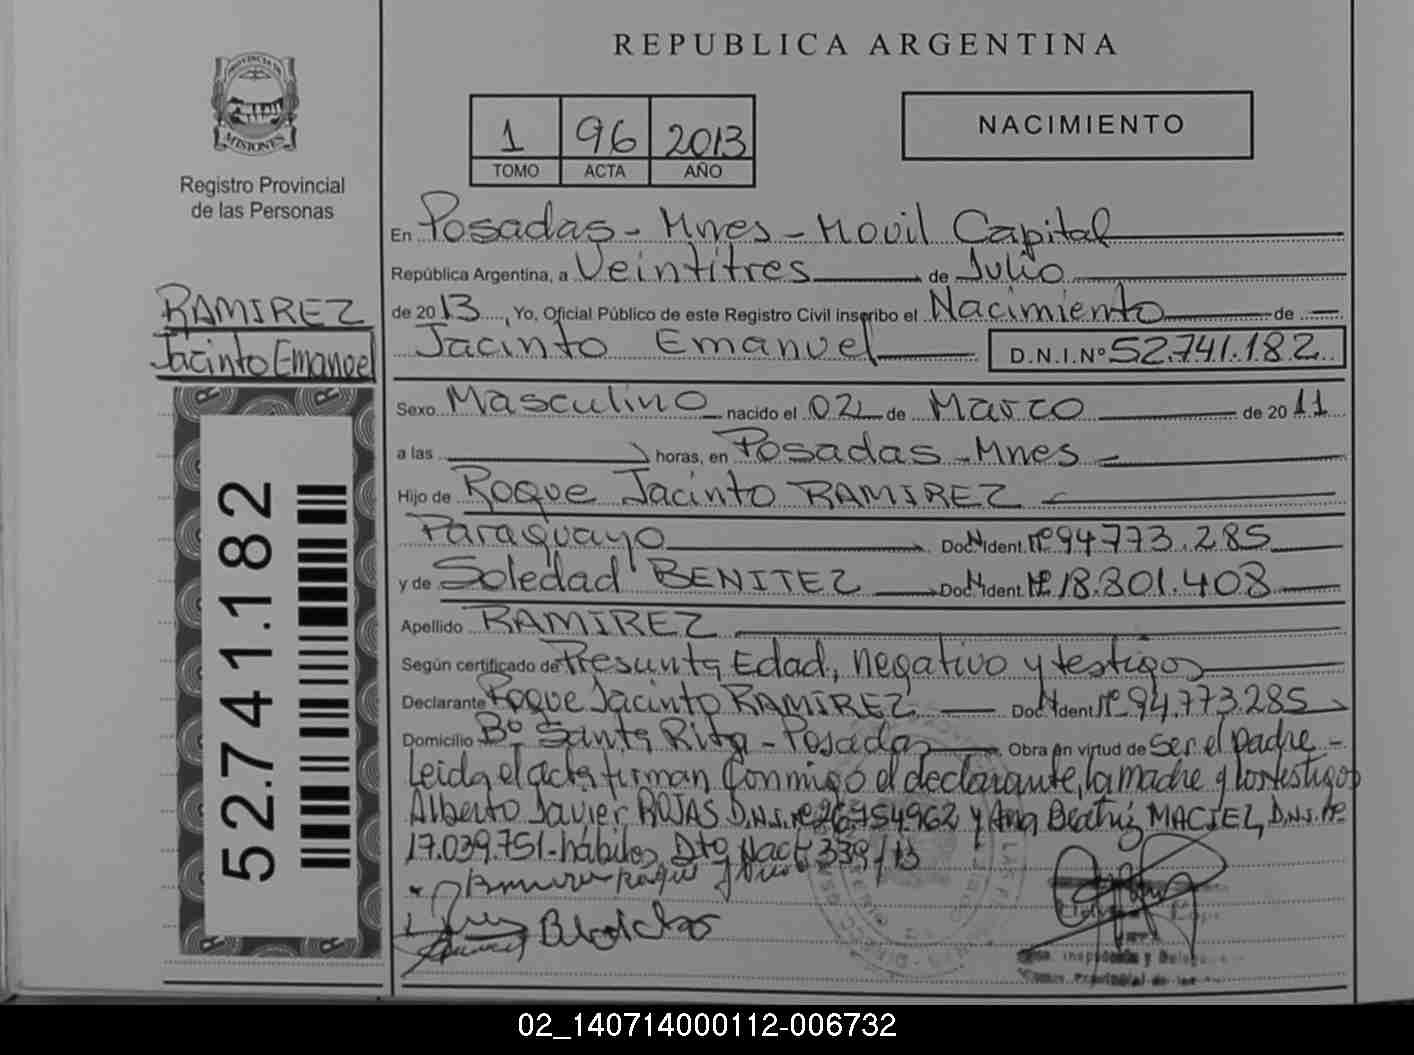 REPUBLICA ARGENTINA
PROVINCIA DE
MISIONES
Registro Provincial
de las Personas
1 96 2013
TOMO ACTA AÑO
NACIMIENTO
En Posadas - Mnes - Movil Capital
República Argentina, a Veintitres de Julio
de 2013, Yo, Oficial Público de este Registro Civil inscribo el Nacimiento de
Jacinto Emanuel D.N.I.Nº 52.741.182
RAMIREZ
Jacinto Emanuel
52.741.182
Sexo Masculino nacido el 02 de Marzo de 2011
a las horas, en Posadas - Mnes
Hijo de Roque Jacinto RAMIREZ
Paraguayo Doc. Ident. Nº 94.773.285
y de Soledad BENITEZ Doc. Ident. Nº 18.801.408
Apellido RAMIREZ
Según certificado de Presunta Edad, negativo y testigos
Declarante Roque Jacinto RAMIREZ Doc. Ident. Nº 94.773.285
Domicilio Bº Santa Rita - Posadas Obra en virtud de ser el padre -
Leida el acta firman conmigo el declarante, la madre y los testigos
Alberto Javier ROJAS D.N.I. Nº 26.754.962 y Ana Beatriz MACIEL, D.N.I. Nº
17.039.751 - hábiles, Dto Nac. 339/13
02_140714000112-006732